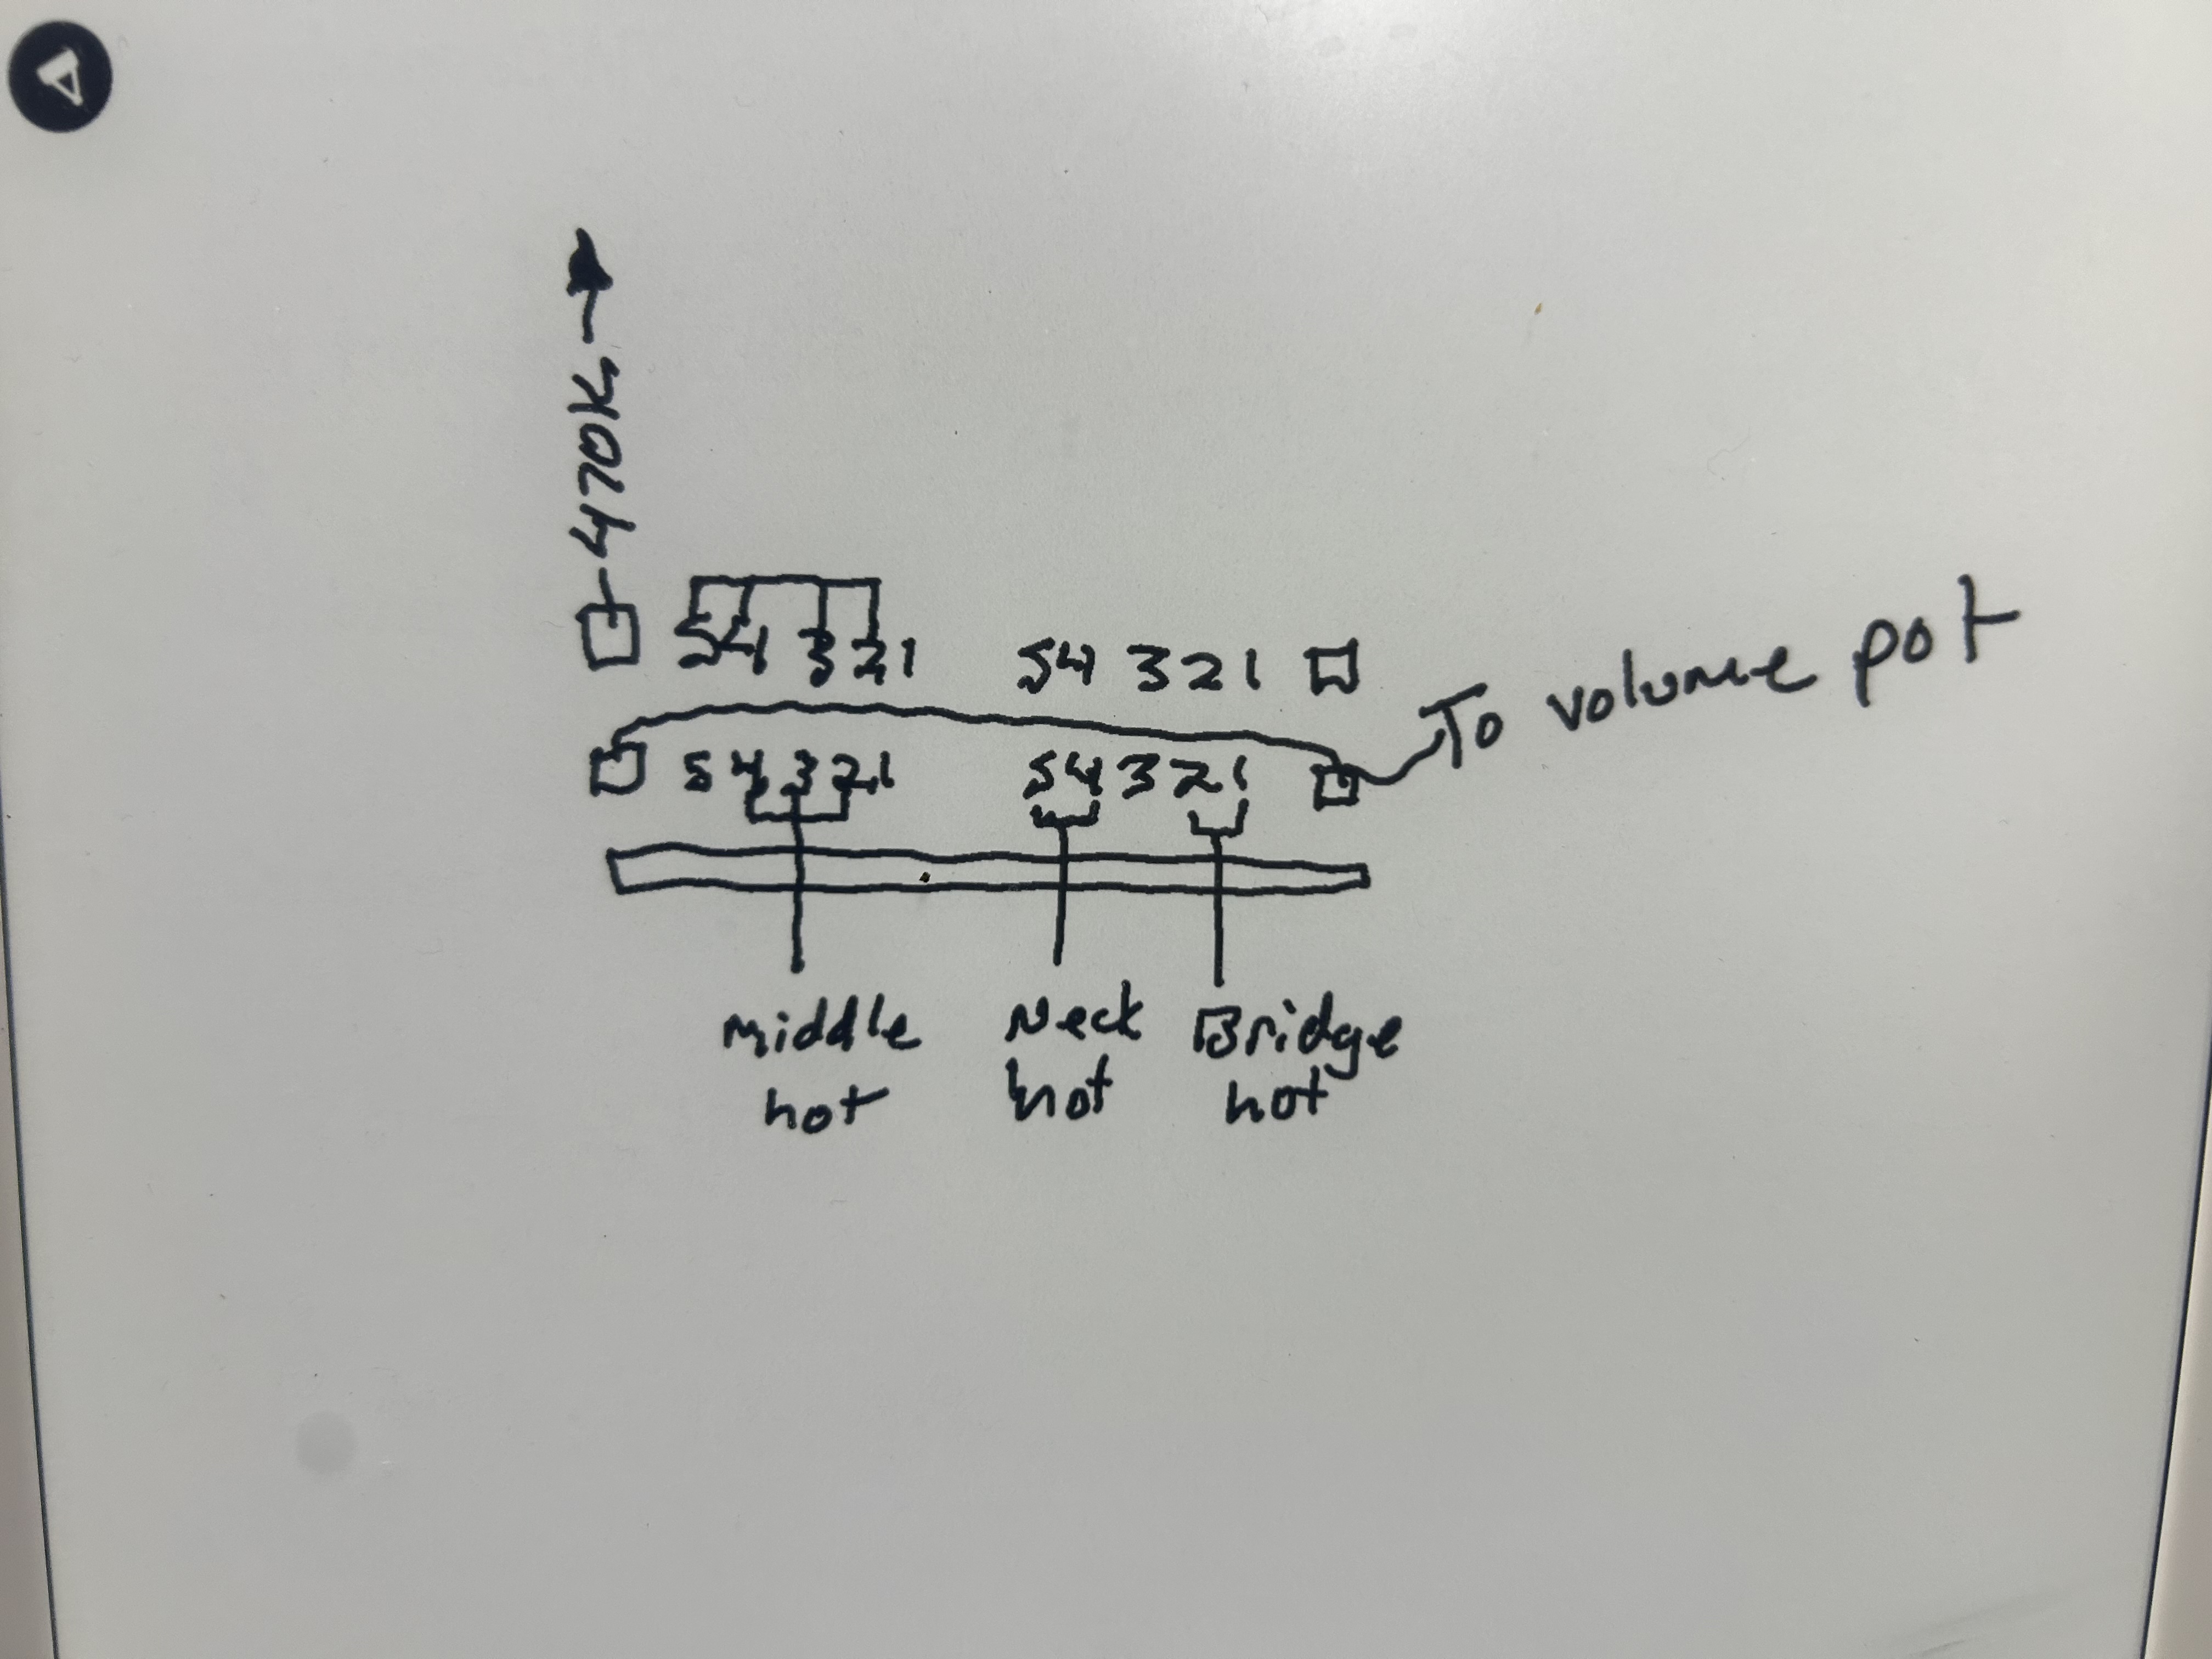 470K
54 321 54 321
To volume pot
5 4 3 21 54 3 21
Middle Neck Bridge
hot hot hot